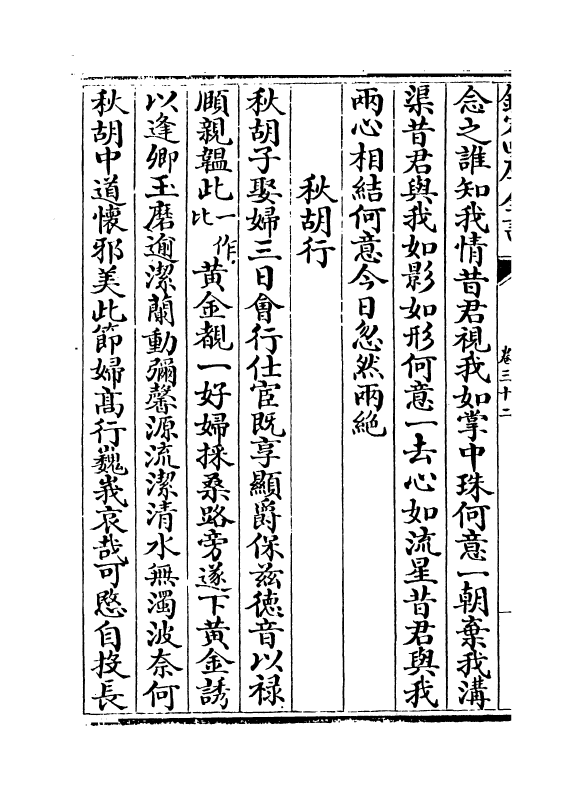 欽定四庫全書
卷三十二
念之誰知我情昔君視我如掌中珠何意一朝棄我溝
渠昔君與我如影如形何意一去心如流星昔君與我
兩心相結何意今日忽然兩絶
秋胡行
秋胡子娶婦三日會行仕宦既享顯爵保兹徳音以禄
頤親韞此一作比黄金覩一好婦採桑路旁遂下黄金誘
以逢卿玉磨逾潔蘭動彌馨源流潔清水無濁波奈何
秋胡中道懷邪美此節婦髙行巍峩哀哉可愍自投長